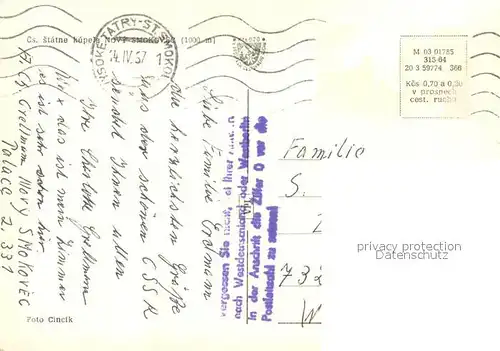 Čs. štátne kúpele NOVÝ SMOKOVEC (1000 m)
VYSOKÉ TATRY-ST. SMOKOVEC
14.IV.67
1
M 03 01785
315/64
20 3 59774 366
Kčs 0,70 a 0,30
v prospech
cest. ruchu
Liebe Familie
die herzlichsten Grüße
aus der schönen ČSSR
sendet Ihnen allen
Ihre Charlotte Grellmann
das ist mein Zimmer
es ist sehr schön hier.
Grellmann Nový SMOKOVEC
Palace Z. 331
Vergessen Sie nicht, bei Ihrer
nach Westdeutschland oder Westberlin
in der Anschrift die Ziffer O vor die
Postleitzahl zu setzen!
Familie
S.
732
W
privacy protection
Datenschutz
Foto Cincík